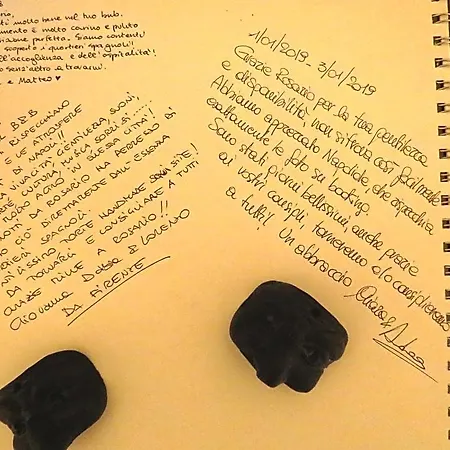 ti molto bene nel tuo b&b.
amento è molto carino e pulito
izione perfetta. Siamo contenti
scoperto i quartieri spagnoli!
ll'accoglienza e dell'ospitalità!
senz'altro a trovarvi.
e Matteo ♥
B&B
RISPECCHIANO
E LE ATMOSFERE
DI NAPOLI!!
VIVACITÀ, GENTILEZZA, SUONI,
CULTURA, MUSICA, SORRISI
QUESTA CITTÀ!
DA ROSARIO HA PERMESSO DI
CIÒ DIRETTAMENTE DALL'ESSENZA
SPAGNOLI.
FORTE
DA TORNARCI E CONSIGLIARE A TUTTI
GRAZIE MILLE A ROSARIO!!
Giovanna & LORENZO
DA FIRENZE
1/01/2019 - 3/01/2019
Grazie Rosario per la tua gentilezza
e disponibilità, non si trova così facilmente
Abbiamo apprezzato Napolide, che rispecchia
esattamente le foto su booking.
Sono stati giorni bellissimi, anche grazie
ai vostri consigli, torneremo e lo consiglieremo
a tutti! Un abbraccio Chiara &